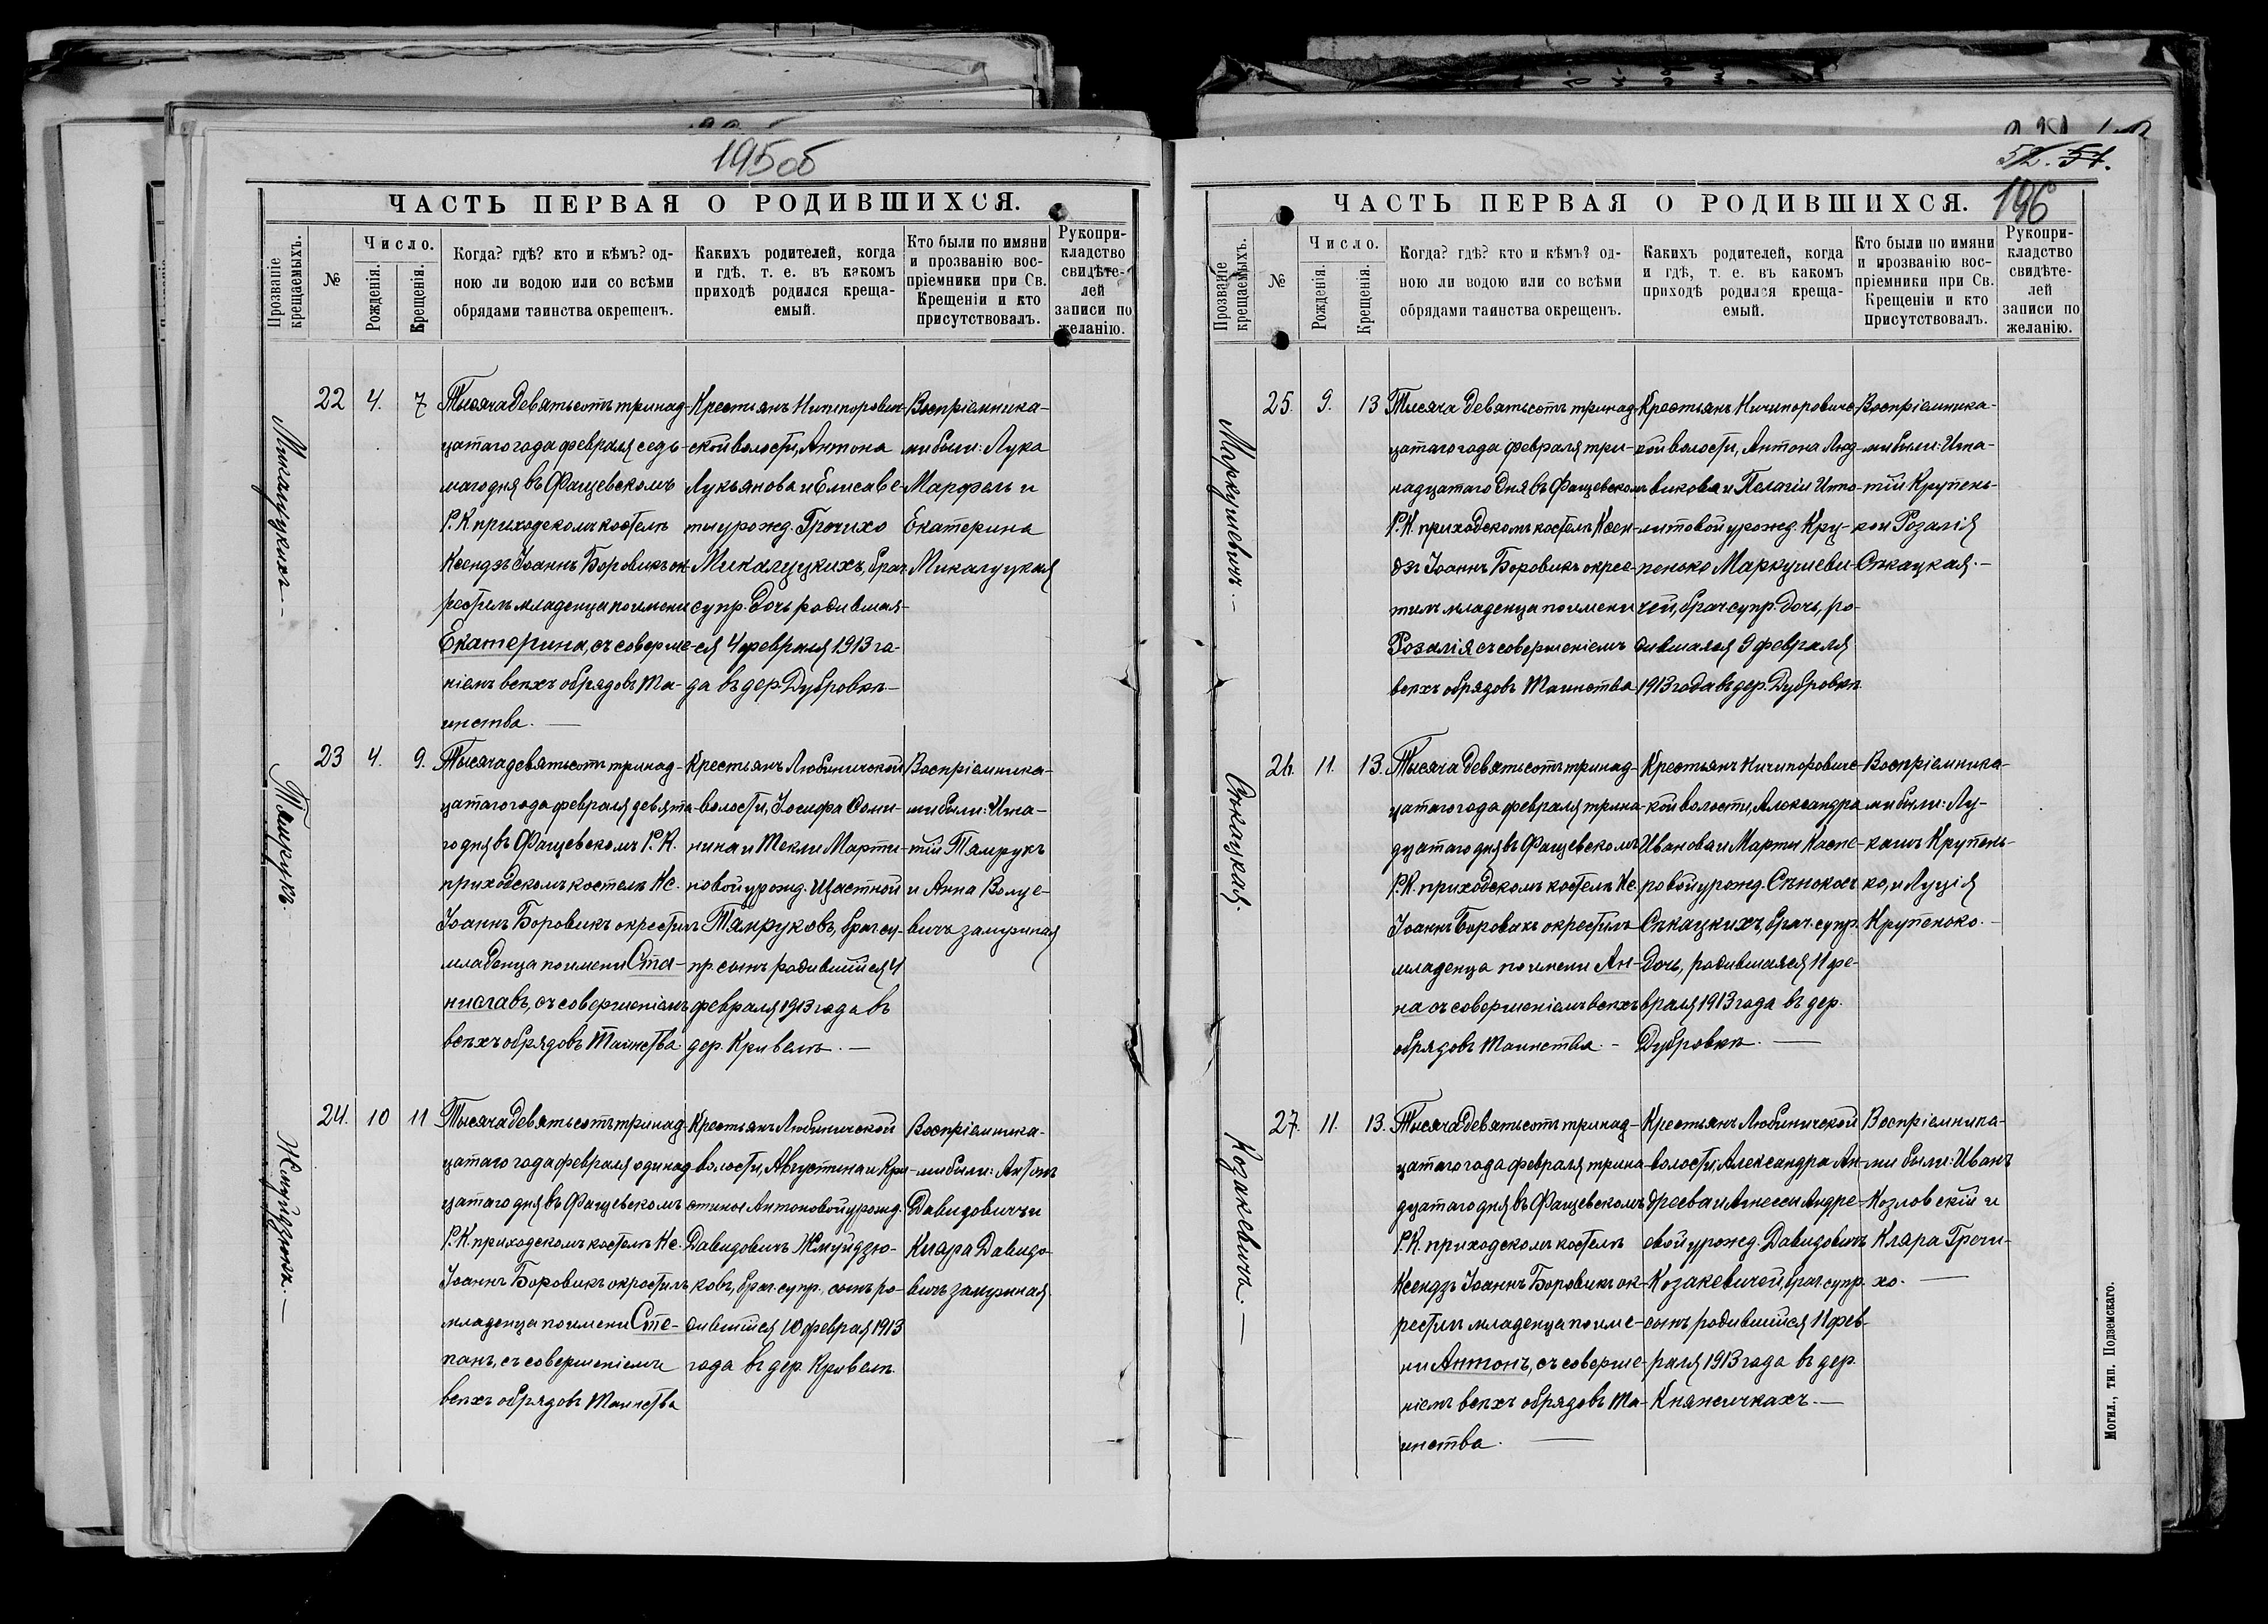 195 об
ЧАСТЬ ПЕРВАЯ О РОДИВШИХСЯ.
Прозваніе крещаемыхъ.
№
Число.
Рожденія.
Крещенія.
Когда? гдѣ? кто и кѣмъ? од-
ною ли водою или со всѣми
обрядами таинства окрещенъ.
Какихъ родителей, когда
и гдѣ, т. е. въ какомъ
приходѣ родился креща-
емый.
Кто были по имяни
и прозванію вос-
пріемники при Св.
Крещеніи и кто
присутствовалъ.
Рукопри-
кладство
свидѣте-
лей
записи по
желанію.
Микалуцкихъ
22
4.
7
Тысяча девятьсотъ тринад-
цатаго года февраля седь-
маго дня въ Фащевскомъ
Р. К. приходскомъ костелѣ
Ксендзъ Іоаннъ Боровикъ ок-
рестилъ младенца по имени
Екатерина, съ соверше-
ніемъ всѣхъ обрядовъ Та-
инства.
Крестьянъ Ничипорович-
ской волости, Антона
Лукьянова и Елисаве-
ты урожд. Грочихо
Микалуцкихъ, брач.
супр. дочь родившая-
ся 4 февраля 1913 го-
да въ дер. Дубровкѣ
Воспріемника-
ми были: Лука
Марфель и
Екатерина
Микалуцкая
Тамрукъ.
23
4.
9.
Тысяча девятьсотъ тринад-
цатаго года февраля девята-
го дня въ Фащевскомъ Р. К.
приходскомъ костелѣ Кс.
Іоаннъ Боровикъ окрестилъ
младенца по имени Ста-
ниславъ, съ совершеніемъ
всѣхъ обрядовъ Таинства.
Крестьянъ Любиничской
волости, Іосифа Осми-
нина и Текли Марти-
новой урожд. Щастной
Тамруковъ, брач. су-
пр. сынъ родившійся 4
февраля 1913 года въ
дер. Кривель.
Воспріемника-
ми были: Игна-
тій Тамрукъ
и Анна Волце-
вичъ замужная
Жмуйдзюкъ.
24.
10
11
Тысяча девятьсотъ тринад-
цатаго года февраля одинад-
цатаго дня въ Фащевскомъ
Р. К. приходскомъ костелѣ Кс.
Іоаннъ Боровикъ окрестилъ
младенца по имени Сте-
панъ, съ совершеніемъ
всѣхъ обрядовъ Таинства
Крестьянъ Любиничской
волости, Августина и Кри-
стины Антоновой урожд.
Давидовичъ Жмуйдзю-
ковъ, брач. супр., сынъ ро-
дившійся 10 февраля 1913
года въ дер. Кривель.
Воспріемника-
ми были: Антонъ
Давидовичъ и
Клара Давидо-
вичъ замужная
52. 51.
196
ЧАСТЬ ПЕРВАЯ О РОДИВШИХСЯ.
Прозваніе крещаемыхъ.
№
Число.
Рожденія.
Крещенія.
Когда? гдѣ? кто и кѣмъ? од-
ною ли водою или со всѣми
обрядами таинства окрещенъ.
Какихъ родителей, когда
и гдѣ, т. е. въ какомъ
приходѣ родился креща-
емый.
Кто были по имяни
и прозванію вос-
пріемники при Св.
Крещеніи и кто
присутствовалъ.
Рукопри-
кладство
свидѣте-
лей
записи по
желанію.
Маркушевичъ.
25.
9.
13
Тысяча девятьсотъ тринад-
цатаго года февраля три-
надцатаго дня въ Фащевскомъ
Р. К. приходскомъ костелѣ Ксен-
дзъ Іоаннъ Боровикъ окрес-
тилъ младенца по имени
Розалія съ совершеніемъ
всѣхъ обрядовъ Таинства
Крестьянъ Ничипоровичс-
кой волости, Антона Люд-
викова и Пелагіи Иппо-
литовой урожд. Кру-
пенько Маркушеви-
чей, брач. супр. дочь, ро-
дившаяся 9 февраля
1913 года въ дер. Дубровкѣ
Воспріемника-
ми были: Игна-
тій Крупень-
ко и Розалія
Сѣкацкая.
Сѣкацкая.
26.
11.
13.
Тысяча девятьсотъ тринад-
цатаго года февраля трина-
дцатаго дня въ Фащевскомъ
Р. К. приходскомъ костелѣ Кс.
Іоаннъ Боровикъ окрестилъ
младенца по имени Ан-
на съ совершеніемъ всѣхъ
обрядовъ Таинства.
Крестьянъ Ничипоровичс-
кой волости, Александра
Иванова и Марты Каспе-
ровой урожд. Сѣнокосъ
Сѣкацкихъ, брач. супр.
дочь, родившаяся 11 фе-
враля 1913 года въ дер.
Дубровкѣ.
Воспріемника-
ми были: Лу-
кашъ Крупень-
ко, и Луція
Крупенько.
Козакевичъ.
27.
11.
13.
Тысяча девятьсотъ тринад-
цатаго года февраля трина-
дцатаго дня въ Фащевскомъ
Р. К. приходскомъ костелѣ
Ксендзъ Іоаннъ Боровикъ ок-
рестилъ младенца по име-
ни Антонъ, съ соверше-
ніемъ всѣхъ обрядовъ Та-
инства.
Крестьянъ Любиничской
волости, Александра Ан-
дреева и Агнессы Андре-
евой урожд. Давидовичъ
Козакевичей, брач. супр.
сынъ родившійся 11 фев-
раля 1913 года въ дер.
Княжичкахъ.
Воспріемника-
ми были: Иванъ
Козловскій и
Клара Грочи-
хо.
Могил., тип. Подземскаго.